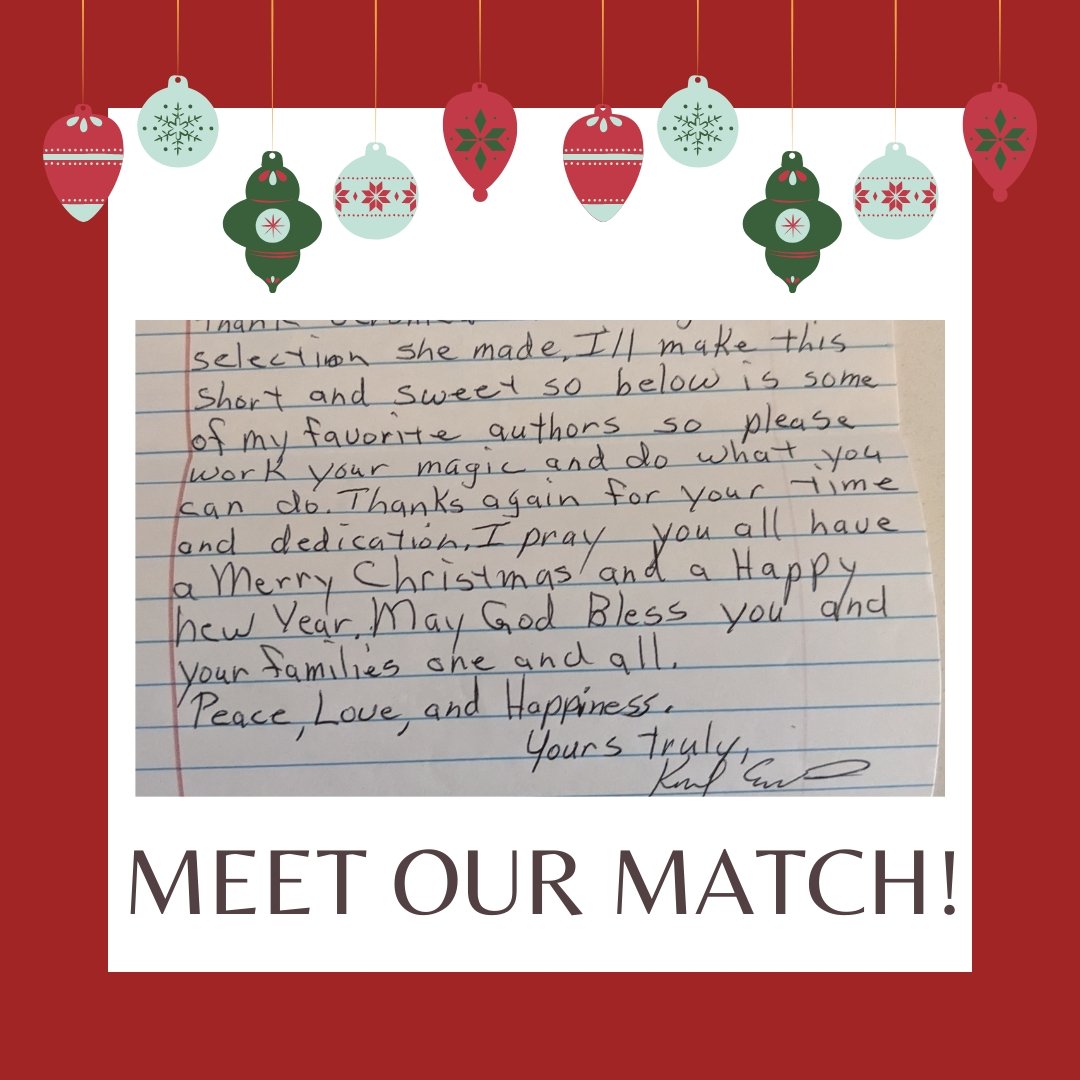 selection she made, I'll make this
short and sweet so below is some
of my favorite authors so please
work your magic and do what you
can do. Thanks again for your time
and dedication, I pray you all have
a Merry Christmas and a Happy
new Year. May God Bless you and
your families one and all.
Peace, Love, and Happiness.
Yours truly,
MEET OUR MATCH!